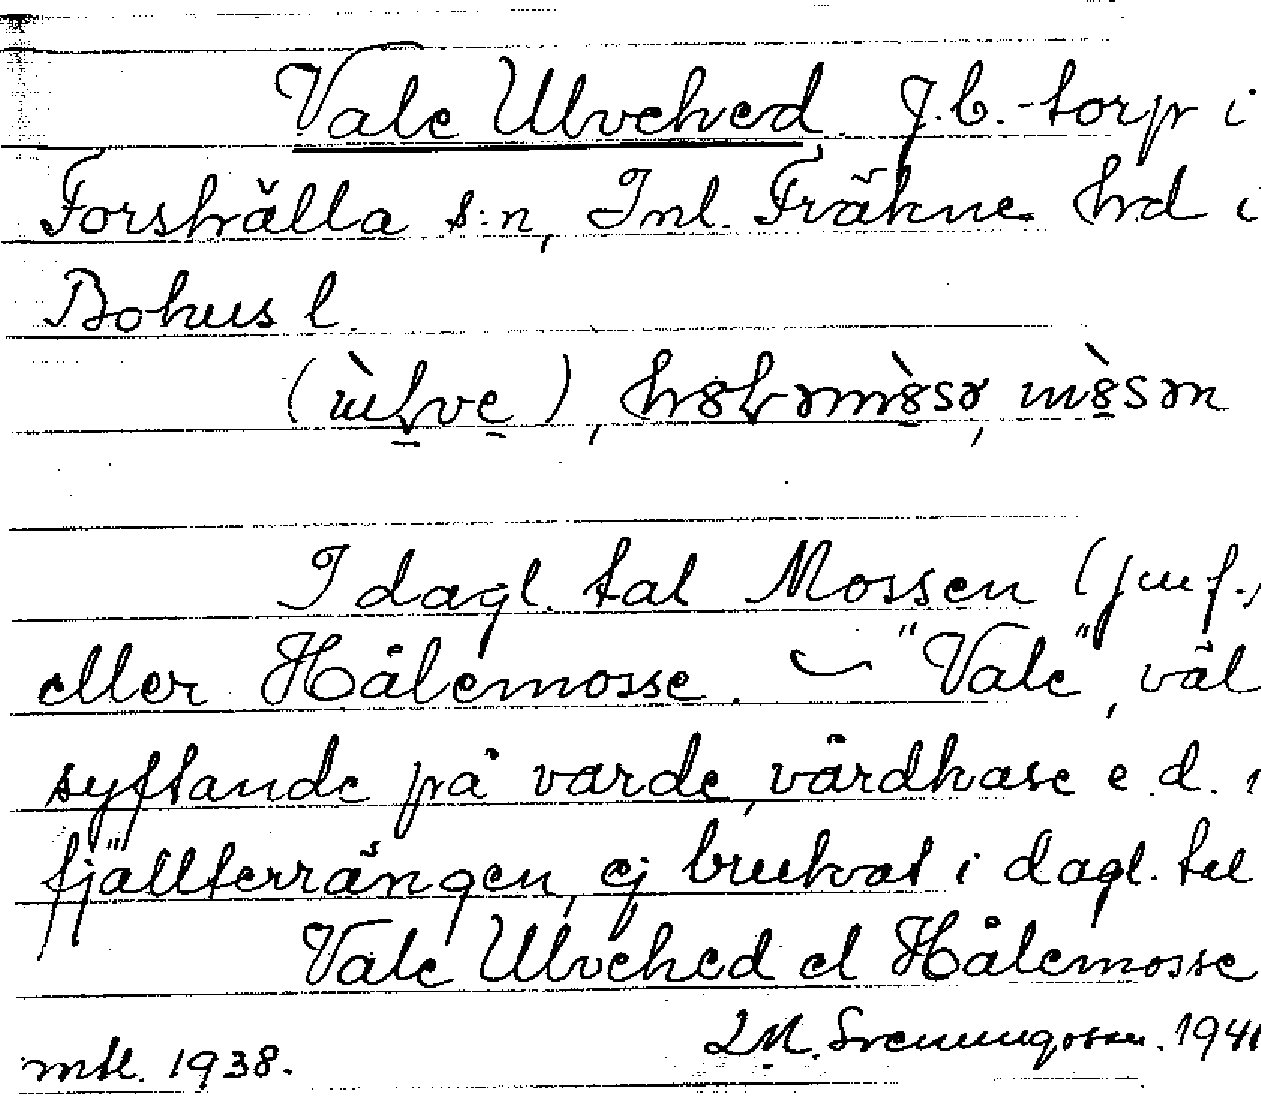 Vale Ulvehed. J.b.-torp i
Forshälla s:n, Inl. Fräkne hrd i
Bohus l.
I dagl. tal Mossen (jmf.,
eller Hålemosse. "Vale", väl
syftande på varde, vårdkase e.d. i
fjällterrängen, ej brukat i dagl. tal
Vale Ulvehed el Hålemosse
mtl. 1938.
Svenungsson. 1941